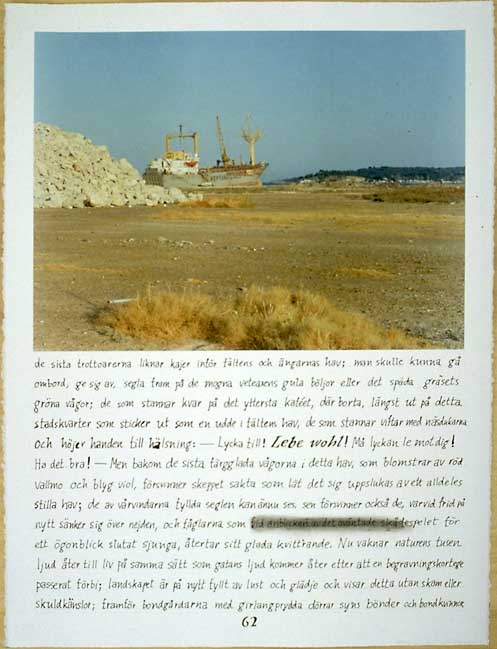 de sista trottoarerna liknar kajer inför fältens och ängarnas hav; man skulle kunna gå
ombord, ge sig av, segla fram på de mogna veteaxens gula böljor eller det späda gräsets
gröna vågor; de som stannar kvar på det yttersta kaféet, där borta, längst ut på detta
stadskvarter som sticker ut som en udde i fältens hav, de som stannar viftar med näsdukarna
och höjer handen till hälsning: — Lycka till! Lebe wohl! Må lyckan le mot dig!
Ha det bra! — Men bakom de sista färgglada vågorna i detta hav, som blomstrar av röd
vallmo och blyg viol, försvinner skeppet sakta som lät det sig uppslukas av ett alldeles
stilla hav; de av vårvindarna fyllda seglen kan ännu ses. sen försvinner också de, varvid frid på
nytt sänker sig över nejden, och fåglarna som vid anblicken av det oväntade skådespelet för
ett ögonblick slutat sjunga, återtar sitt glada kvittrande. Nu vaknar naturens tusen
ljud åter till liv på samma sätt som gatans ljud kommer åter efter att en begravningskortege
passerat förbi; landskapet är på nytt fyllt av lust och glädje och visar detta utan skam eller
skuldkänslor; framför bondgårdarna med girlangprydda dörrar syns bönder och bondkvinnor,
62